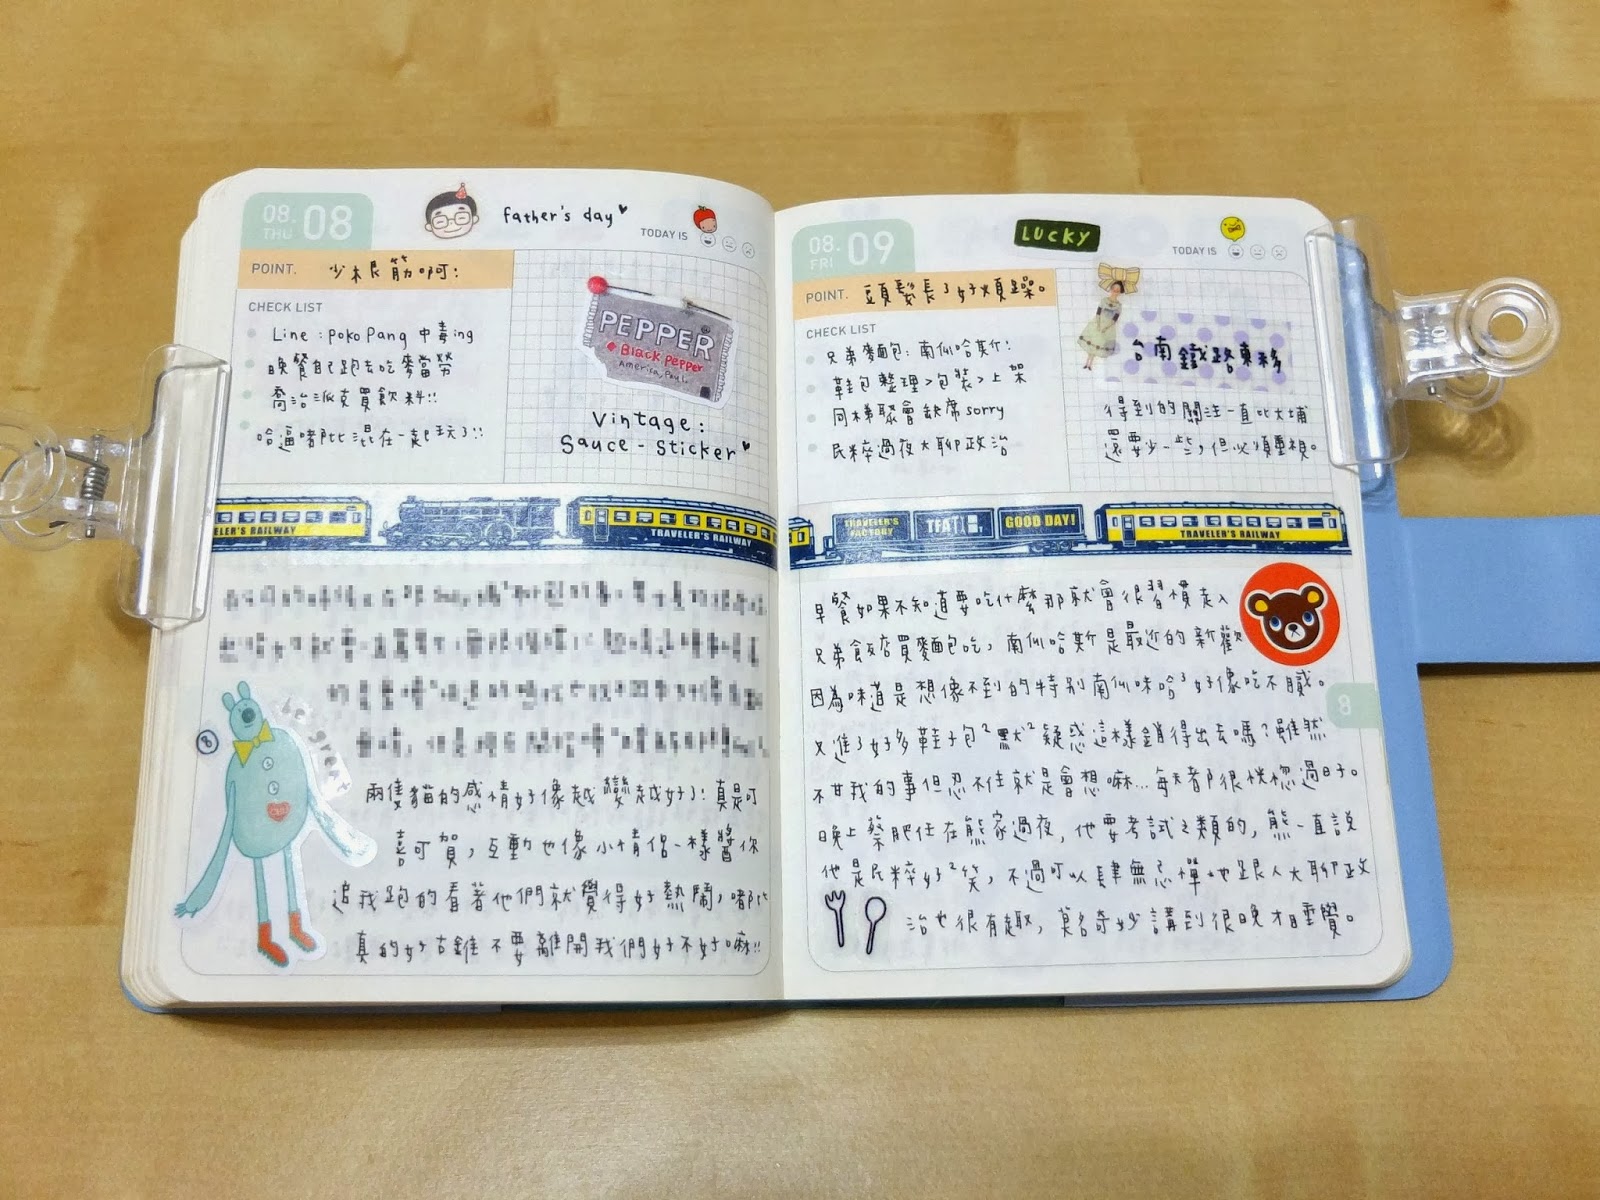 08.
THU
08
father's day
TODAY IS
POINT.
少根筋啊!
CHECK LIST
Line : Poko Pang 中毒ing
晚餐自己跑去吃麥當勞
喬治派克買飲料!!
哈逼啫比混在一起玩了!!
PEPPER
Black Pepper
Vintage :
Sauce - Sticker
ELER'S RAILWAY
TRAVELER'S RAILWAY
兩隻貓的感情好像越變越好了! 真是可
喜可賀, 互動也像小情侶一樣醬你
追我跑的看著他們就覺得好熱鬧, 啫比
真的好古錐不要離開我們好不好嘛!!
08.
FRI
09
LUCKY
TODAY IS
POINT.
頭髮長了好煩躁。
CHECK LIST
兄弟麵包: 南瓜哈斯!
鞋包整理>包裝>上架
同梯聚會缺席sorry
民粹過夜大聊政治
台南鐵路東移
得到的關注一直比大埔
還要少一些, 但必須重視。
TRAVELER'S
FACTORY
GOOD DAY!
TRAVELER'S RAILWAY
早餐如果不知道要吃什麼那就會很習慣走入
兄弟飯店買麵包吃, 南瓜哈斯是最近的新歡
因為味道是想像不到的特別南瓜味哈了好像吃不膩。
又進了好多鞋子包²默²疑惑這樣銷得出去嗎? 雖然
不甘我的事但忍不住就是會想嘛... 每天都很恍惚過日子。
晚上蔡肥仔在熊家過夜, 他要考試之類的, 熊一直說
他是民粹好²笑, 不過可以肆無忌憚地跟人大聊政
治也很有趣, 莫名奇妙講到很晚才睡覺。
8